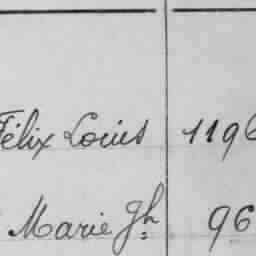 Félix Louis 1196
Marie Jh 96